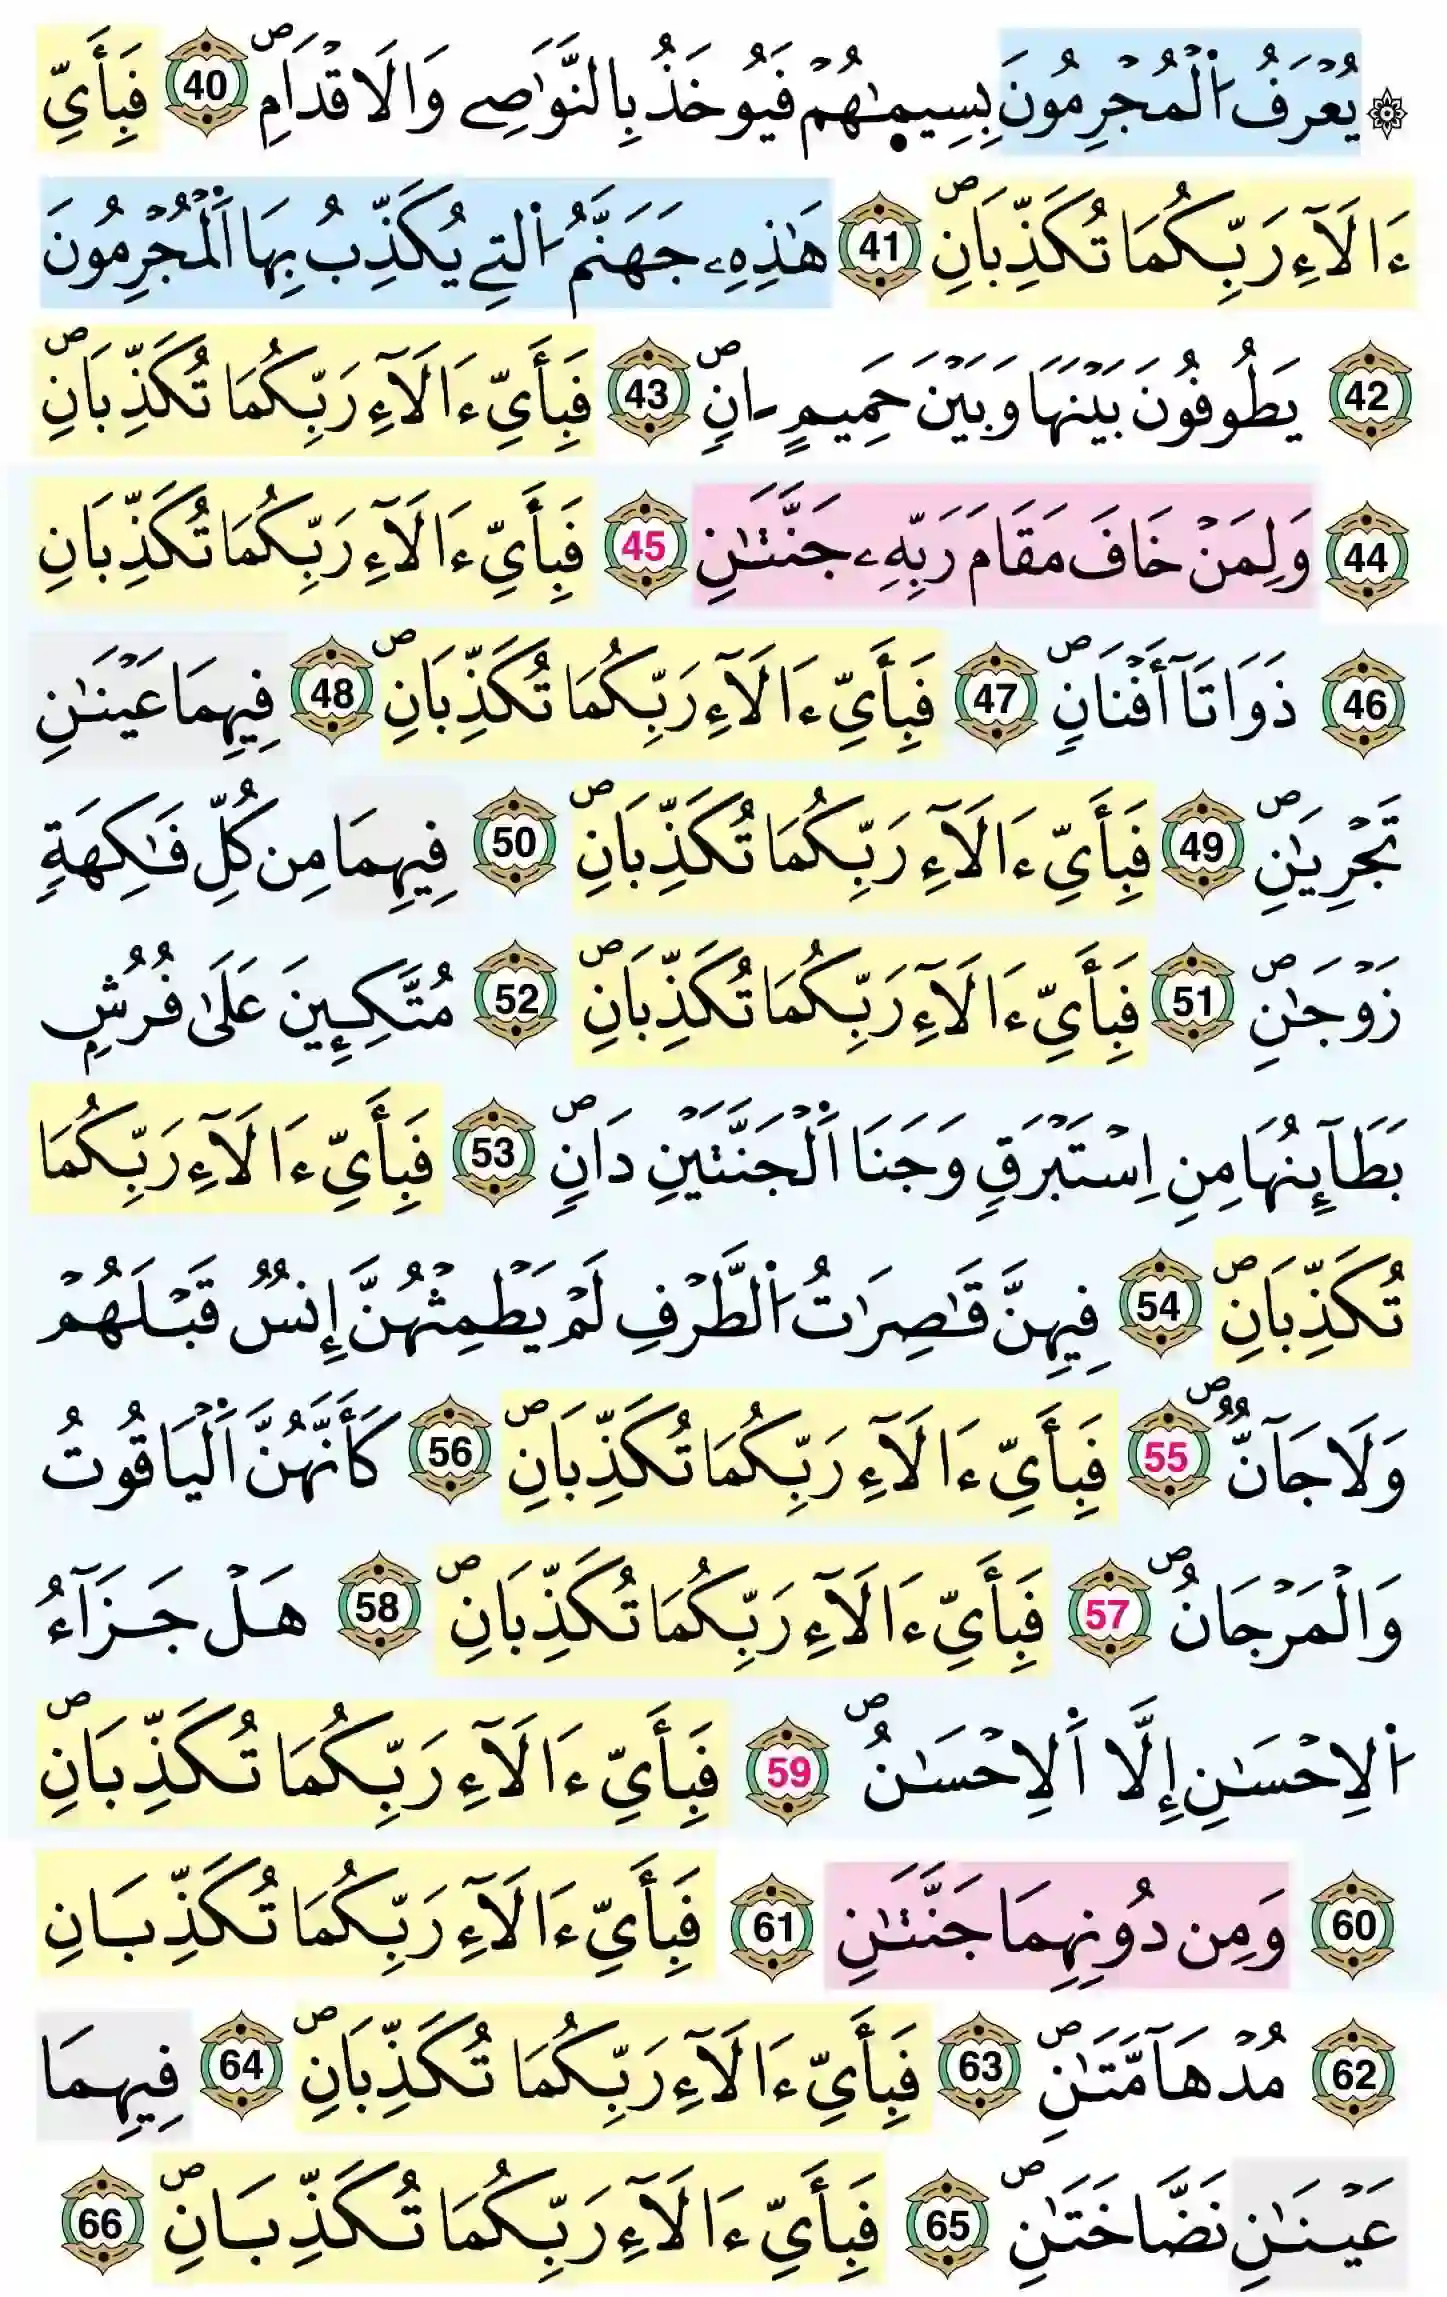 ۞ يُعْرَفُ اُ۬لْمُجْرِمُونَ بِسِيم۪ـٰهُمْ فَيُوخَذُ بِالنَّوَٰصِے وَالَاقْدَامِۖ 40 فَبِأَيِّ
ءَالَآءِ رَبِّكُمَا تُكَذِّبَانِۖ 41 هَٰذِهِۦ جَهَنَّمُ اُ۬لتِے يُكَذِّبُ بِهَا اَ۬لْمُجْرِمُونَ
42 يَطُوفُونَ بَيْنَهَا وَبَيْنَ حَمِيمٍ اٰنٖۖ 43 فَبِأَيِّ ءَالَآءِ رَبِّكُمَا تُكَذِّبَانِۖ
44 وَلِمَنْ خَافَ مَقَامَ رَبِّهِۦ جَنَّتَٰنِ 45 فَبِأَيِّ ءَالَآءِ رَبِّكُمَا تُكَذِّبَانِ
46 ذَوَاتَآ أَفْنَانٖۖ 47 فَبِأَيِّ ءَالَآءِ رَبِّكُمَا تُكَذِّبَانِۖ 48 فِيهِمَا عَيْنَٰنِ
تَجْرِيَٰنِۖ 49 فَبِأَيِّ ءَالَآءِ رَبِّكُمَا تُكَذِّبَانِۖ 50 فِيهِمَا مِن كُلِّ فَٰكِهَةٖ
زَوْجَٰنِۖ 51 فَبِأَيِّ ءَالَآءِ رَبِّكُمَا تُكَذِّبَانِۖ 52 مُتَّكِـِٕينَ عَلَىٰ فُرُشِۢ
بَطَآئِنُهَا مِنِ اِسْتَبْرَقٖ وَجَنَا اَ۬لْجَنَّتَيْنِ دَانٖۖ 53 فَبِأَيِّ ءَالَآءِ رَبِّكُمَا
تُكَذِّبَانِۖ 54 فِيهِنَّ قَٰصِرَٰتُ اُ۬لطَّرْفِ لَمْ يَطْمِثْهُنَّ إِنسٞ قَبْلَهُمْ
وَلَا جَآنّٞۖ 55 فَبِأَيِّ ءَالَآءِ رَبِّكُمَا تُكَذِّبَانِۖ 56 كَأَنَّهُنَّ اَ۬لْيَاقُوتُ
وَالْمَرْجَانُۖ 57 فَبِأَيِّ ءَالَآءِ رَبِّكُمَا تُكَذِّبَانِۖ 58 هَلْ جَزَآءُ
اُ۬لِاحْسَٰنِ إِلَّا اَ۬لِاحْسَٰنُۖ 59 فَبِأَيِّ ءَالَآءِ رَبِّكُمَا تُكَذِّبَانِۖ
60 وَمِن دُونِهِمَا جَنَّتَٰنِ 61 فَبِأَيِّ ءَالَآءِ رَبِّكُمَا تُكَذِّبَانِ
62 مُدْهَآمَّتَٰنِۖ 63 فَبِأَيِّ ءَالَآءِ رَبِّكُمَا تُكَذِّبَانِۖ 64 فِيهِمَا
عَيْنَٰنِ نَضَّاخَتَٰنِۖ 65 فَبِأَيِّ ءَالَآءِ رَبِّكُمَا تُكَذِّبَانِۖ 66